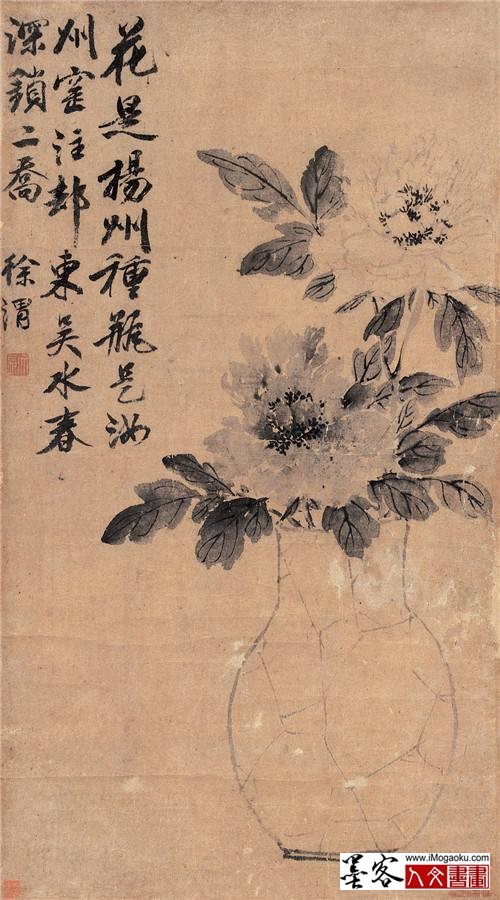 花是揚州種瓶是汝
州窰注却東吳水春
深鎖二喬 徐渭
墨客
www.iMogaoku.com
人文書畫